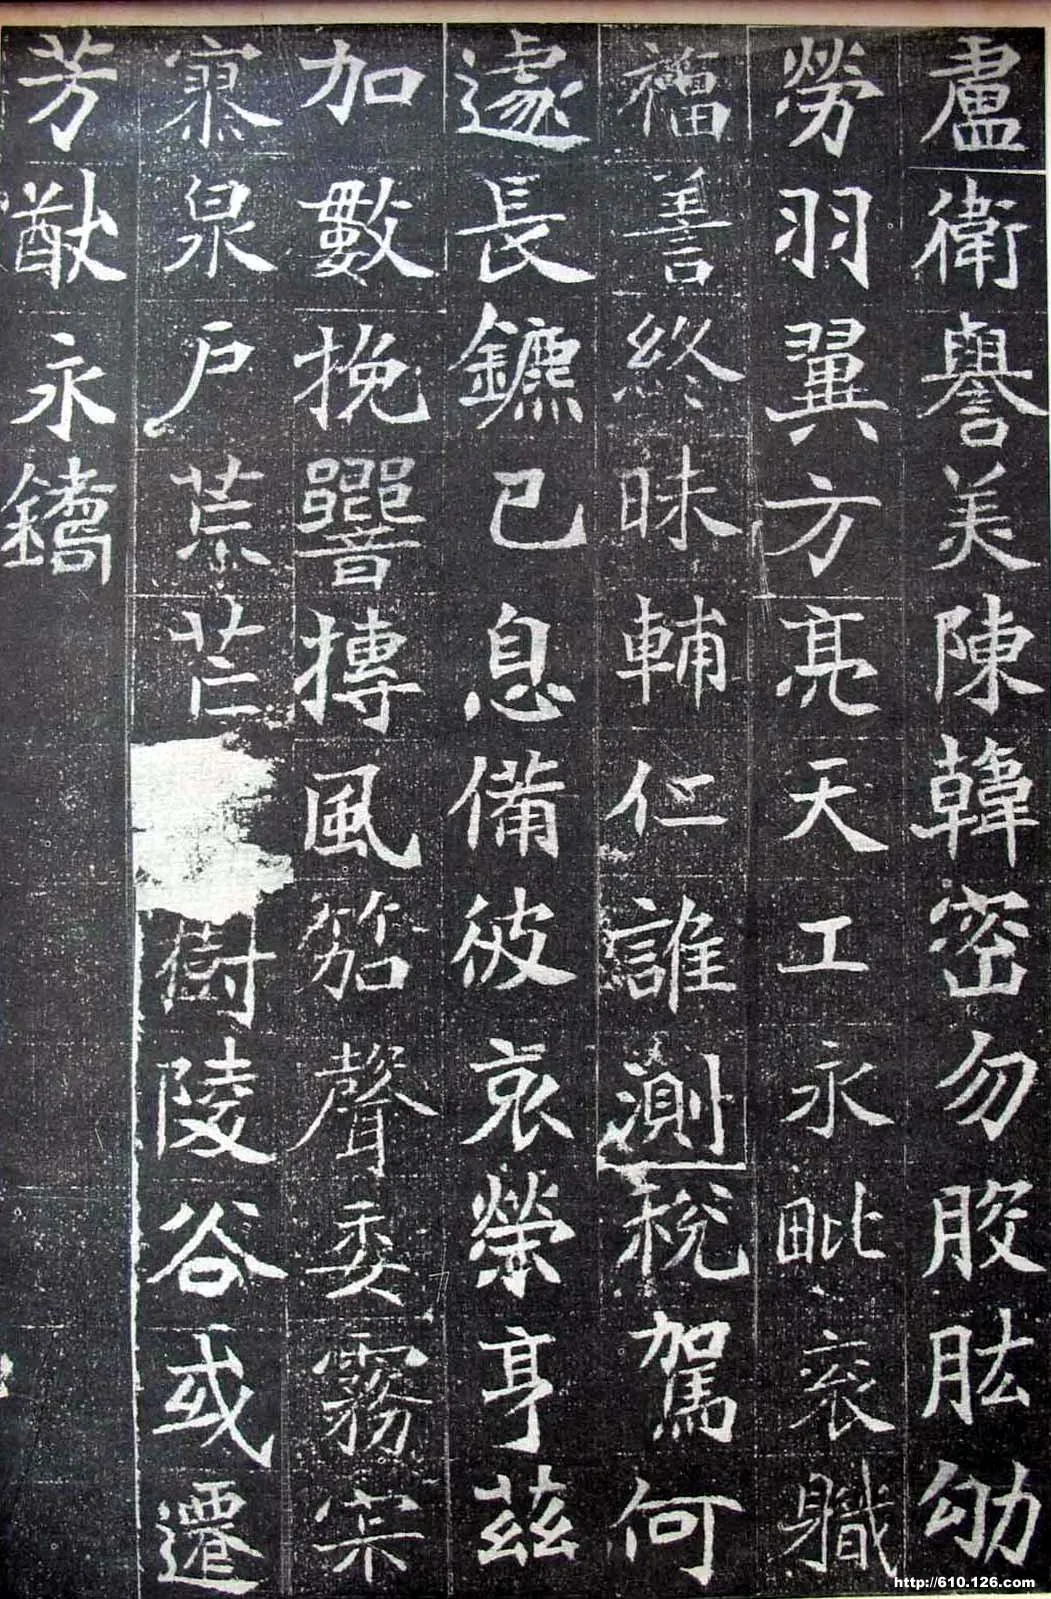 盧衛譽美陳韓密勿股肱劬
勞羽翼方亮天工永毗衮職
福善終昧輔仁誰測稅駕何
遽長鑣已息備彼哀榮亨茲
加數挽響摶風笳聲委霧宋
寮泉戶荒芒樹陵谷或遷
芳猷永鐫
http://610.126.com